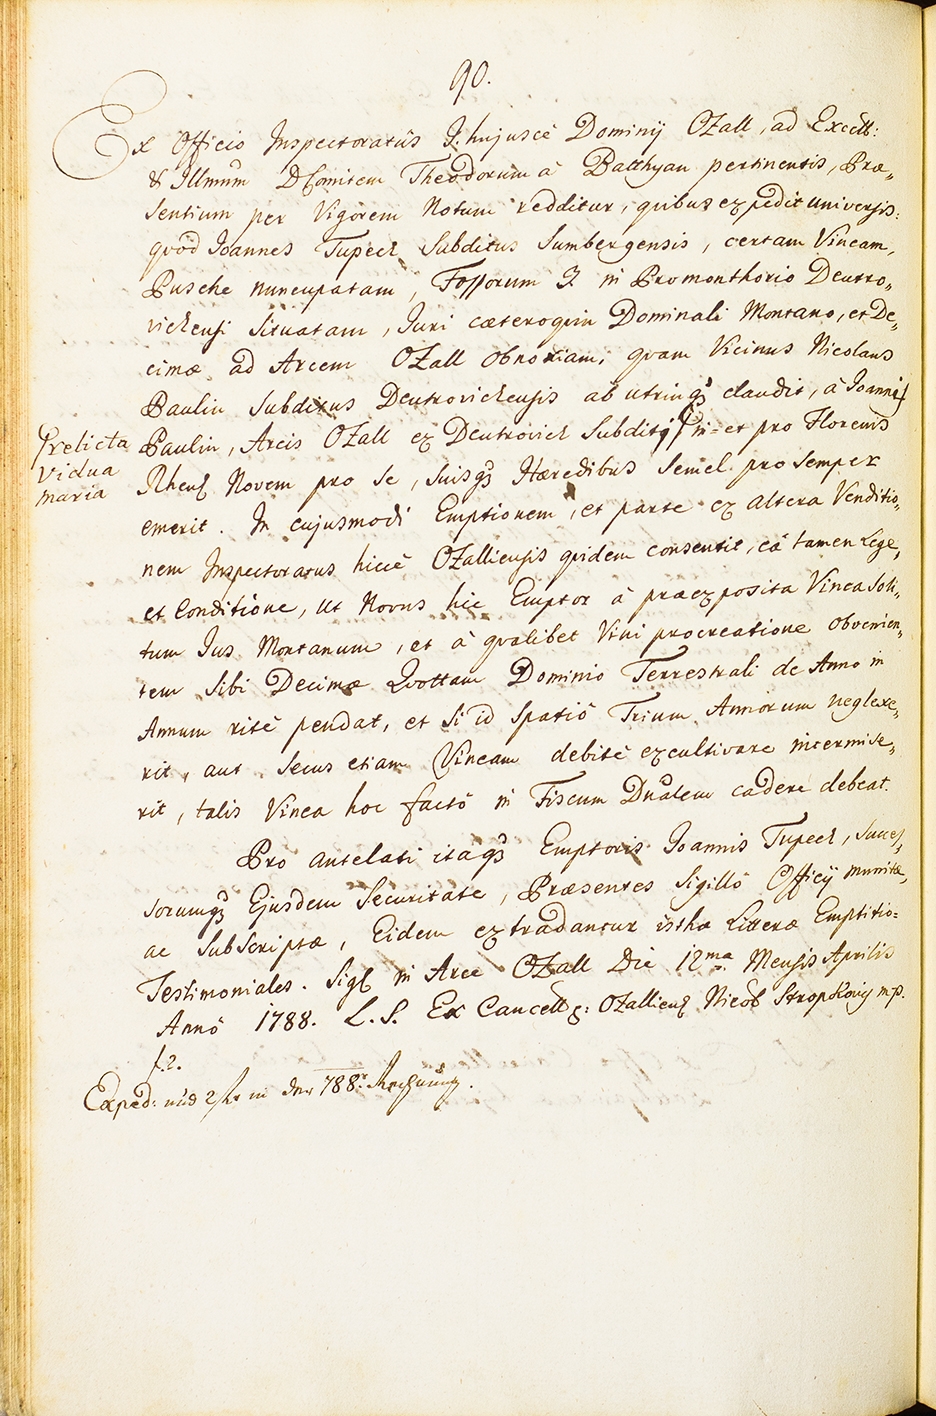 90.
Ex Officio Inspectoratûs I: hujuscè Dominij OZall, ad Excell:
& Illmûm D Comitem Theodorum à Batthyan pertinentis, Præ„
sentium per Vigorem Notum redditur, quibus expedit universis:
quòd Joannes Tupech Subditus Sumbergensis, certam Vineam,
Pusche nuncupatam, Fossorum 2 in Promonthorio Deutro„
vichensi situatam, Juri cæteroquin Dominali Montano, et De„
cimæ ad Arcem OZall obnoxiam; quam Vicinus Nicolaus
Paulin Subditus Deutrovichensis ab utrinq3 claudit, à Joannis
Paulin, Arcis OZall ex Deutrovich Subditi in= et pro Florenis
relicta
Vidua
Maria
Rhens Novem pro se, suisq3 Hæredibus semel pro semper
emerit. In cujusmodi Emptionem, et parte ex altera Venditio„
nem Inspectoratus hicce OZalliensis quidem consentit, eâ tamen Lege,
et Conditione, ut Novus hic Emptor à præexposita Vinea Soli„
tum Jus Montanum, et à qualibet Vini procreatione obvenien„
tem sibi Decimæ Quottam Dominio Terrestrali de Anno in
Annum ritè pendat, et si id spatiô Trium Annorum neglexe„
rit, aut secus etiam Vineam debitè excultivare intermise„
rit, talis Vinea hoc factô in Fiscum Dnalem cadere debeat.
Pro antelati itaq3 Emptoris Joannis Tupech, Succes„
sorumq3 Ejusdem Securitate, Præsentes Sigillô Officij munitæ,
ac Subscriptæ, Eidem extradantur isthæ Litteræ Emptitio=
Testimoniales. Sigl in Arce OZall Die 12ma Mensis Aprilis
Annô 1788. L. S. Ex Cancell: OZalliens Nicol Stropkovij mp.
f. 2.
Exped: und 2 fr in der 788r Rechnung.